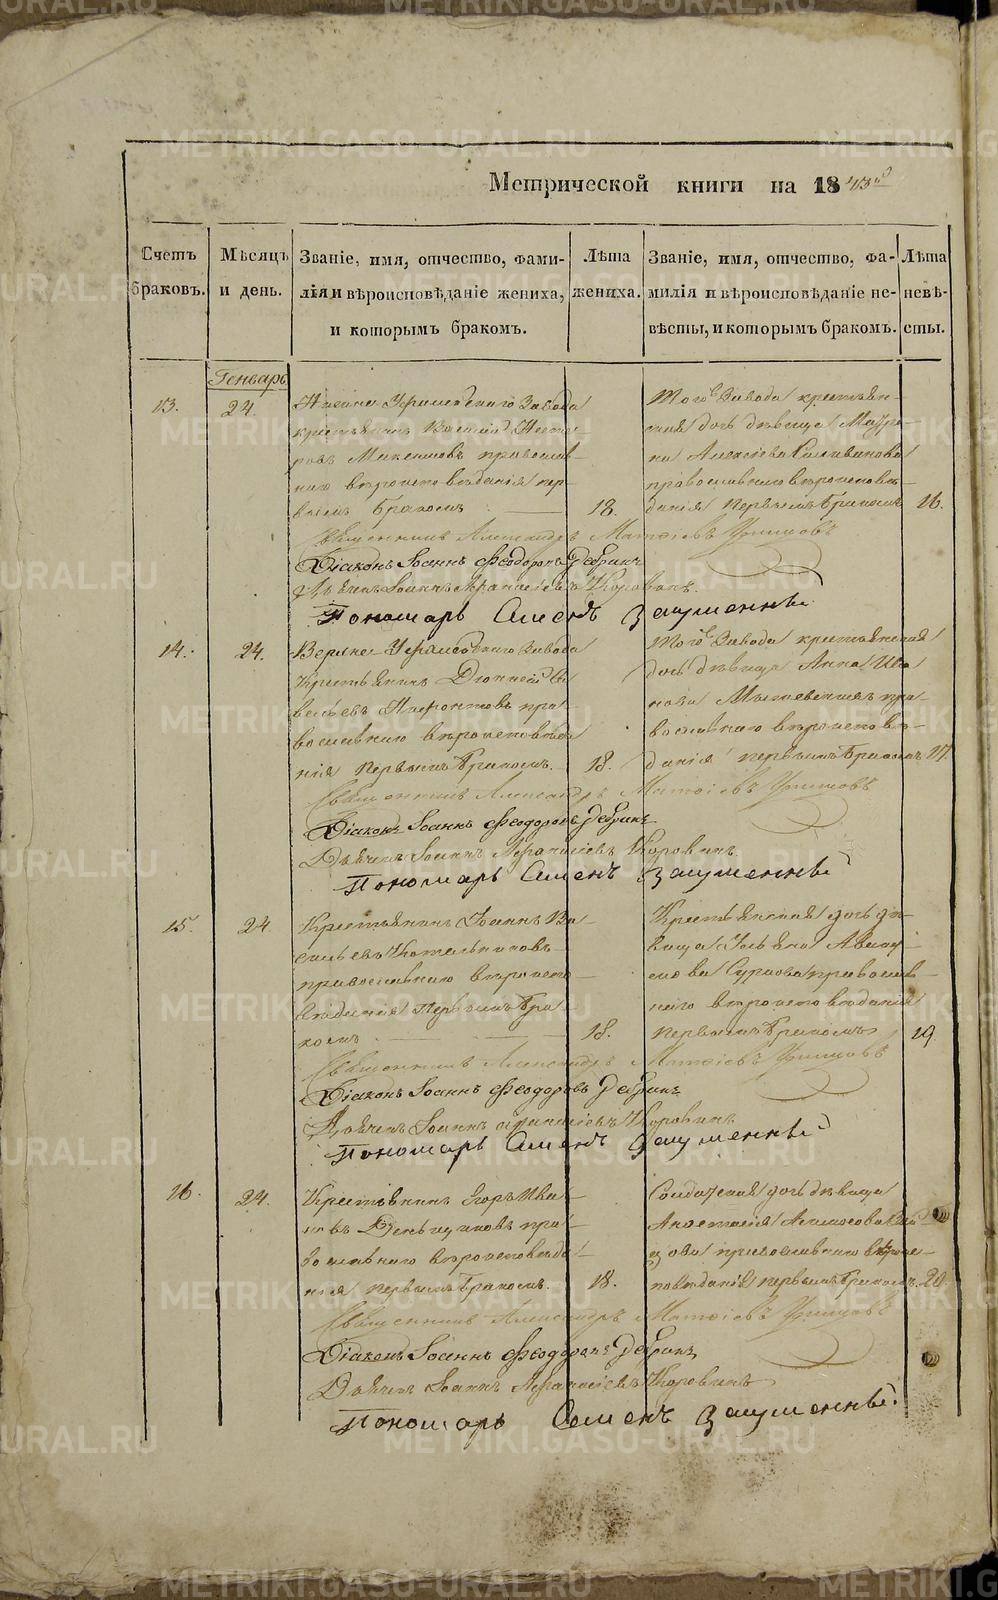 Метрической книги на 1843й
Счетъ браковъ.
Мѣсяцъ и день.
Званіе, имя, отчество, фами-
лія и вѣроисповѣданіе жениха,
и которымъ бракомъ.
Лѣта жениха.
Званіе, имя, отчество, фа-
милія и вѣроисповѣданіе не-
вѣсты, и которымъ бракомъ.
Лѣта невѣ-
сты.
Генварь
13.
24.
Завода
крестьянинъ
православ-
наго вѣроисповѣданія пер-
вымъ бракомъ
18.
Того Завода крестьян-
ская дочь дѣвица Матро-
на Алексіева Селиванова
православнаго вѣроисповѣ-
данія первымъ бракомъ
16.
Священникъ Александръ Матѳіевъ
Діаконъ Іоаннъ Феодоровъ Дебринъ
Дьячекъ Іоаннъ Афанасіевъ Коровинъ
Пономарь Симеонъ
14.
24.
завода
Крестьянинъ
пра-
вославнаго вѣроисповѣда
нія первымъ бракомъ.
18.
Того завода крестьянская
дочь дѣвица Анна Ива
нова пра-
вославнаго вѣроисповѣ-
данія первымъ бракомъ
17.
Священникъ Александръ Матѳіевъ
Діаконъ Іоаннъ Феодоровъ Дебринъ
Дьячекъ Іоаннъ Афанасіевъ Коровинъ
Пономарь Симеонъ
15.
24.
Крестьянинъ Іоаннъ Ва-
сильевъ Котельниковъ
православнаго вѣроиспо-
вѣданія первымъ бра-
комъ
18.
Крестьянская дочь дѣ-
вица
православ-
наго вѣроисповѣданія
первымъ бракомъ
19
Священникъ Александръ Матѳіевъ
Діаконъ Іоаннъ Феодоровъ Дебринъ
Дьячекъ Іоаннъ Афанасіевъ Коровинъ
Пономарь Симеонъ
16.
24.
Крестьянинъ Егоръ Ива-
новъ Деньщиковъ пра-
вославнаго вѣроисповѣда-
нія первымъ бракомъ.
18.
Солдатская дочь дѣвица
Анастасія
православнаго вѣроис-
повѣданія первымъ бракомъ.
20.
Священникъ Александръ Матѳіевъ
Діаконъ Іоаннъ Феодоровъ Дебринъ
Дьячекъ Іоаннъ Афанасіевъ Коровинъ
Пономарь Симеонъ
METRIKI.GASO-URAL.RU